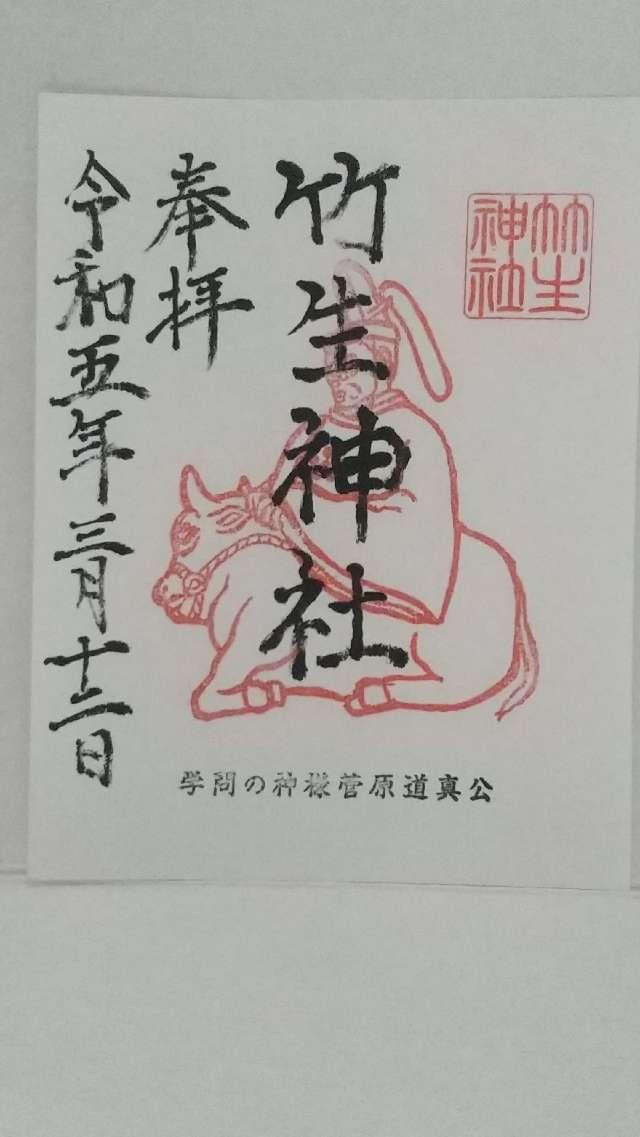 竹生
神社
竹生神社
奉拝
令和五年三月十二日
学問の神様菅原道真公